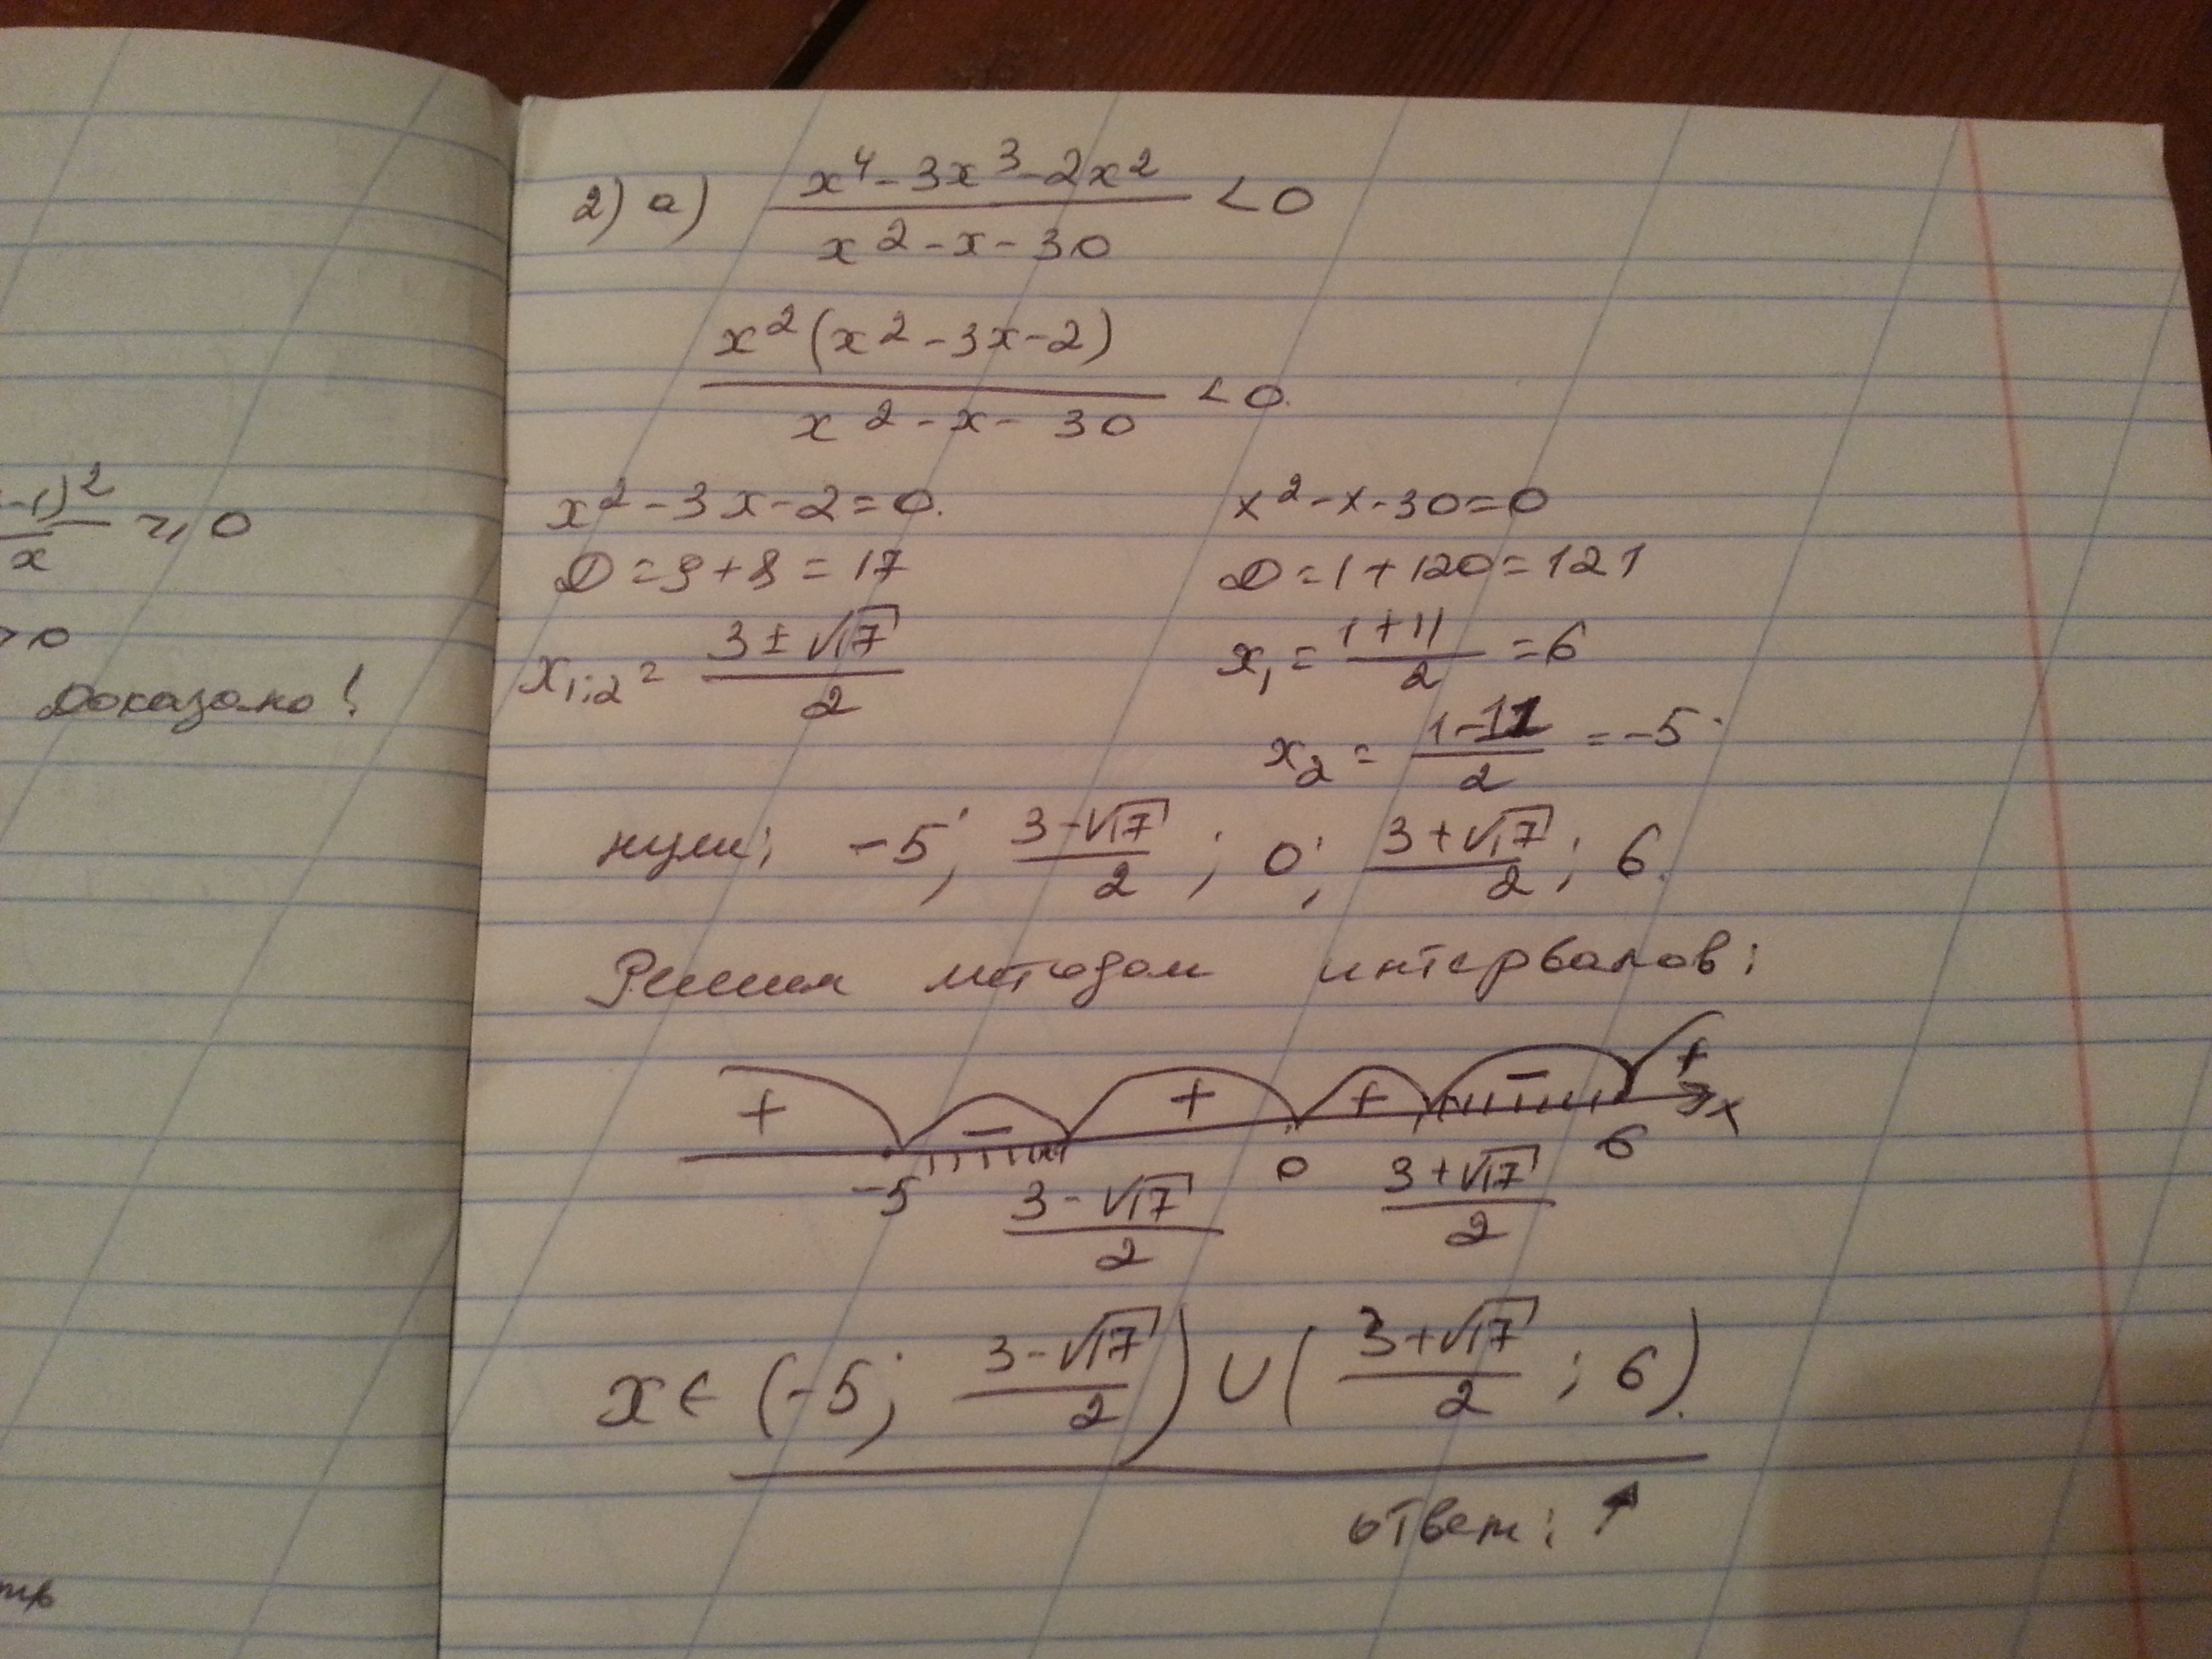 -1)²/x ≥ 0
>0
Доказано!
2) а) (x⁴-3x³-2x²)/(x²-x-30) <0
x²(x²-3x-2)/(x²-x-30) <0.
x²-3x-2=0. x²-x-30=0
D=9+8=17 D=1+120=121
x₁;₂=(3±√17)/2 x₁=(1+11)/2=6
x₂=(1-11)/2=-5
нули: -5; (3-√17)/2; 0; (3+√17)/2; 6.
Решим методом интервалов:
+ - + + - + x
-5 (3-√17)/2 0 (3+√17)/2 6
x∈(-5; (3-√17)/2)∪((3+√17)/2; 6).
ответ: ↑